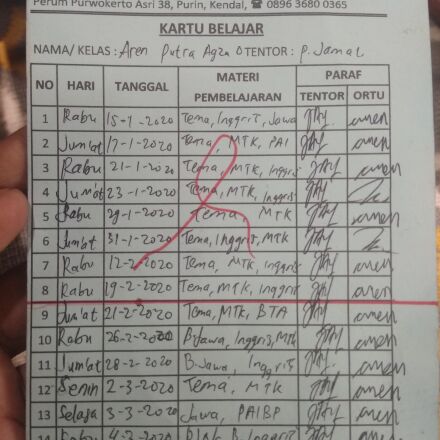 Perum Purwokerto Asri 38, Purin, Kendal, ☎ 0896 3680 0365
KARTU BELAJAR
NAMA/ KELAS : Aren Putra Agza TENTOR : P. Jamal
NO HARI TANGGAL MATERI PEMBELAJARAN PARAF
TENTOR ORTU
1 Rabu 15-1-2020 Tema, Inggrit, Jawa
2 Jum'at 17-1-2020 Tema, MTK, PAI
3 Rabu 21-1-2020 Tema, MTK, Inggris
4 Jum'at 23-1-2020 Tema, MTK, Inggris
5 Rabu 29-1-2020 Tema, MTK
6 Jum'at 31-1-2020 Tema, Inggris, MTK
7 Rabu 12-2-2020 Tema, MTK, Inggris
8 Rabu 19-2-2020 Tema, MTK, Inggris
9 Jum'at 21-2-2020 Tema, MTK, BTA
10 Rabu 26-2-2020 B.Jawa, Inggris, MTK
11 Jum'at 28-2-2020 B.Jawa, Inggris
12 Senin 2-3-2020 Tema, MTK
13 Selasa 3-3-2020 Jawa, PAIBP
14 Rabu 4-3-2020